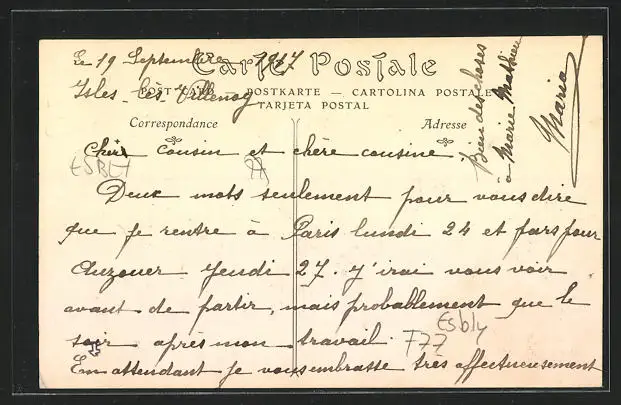 Le 19 Septembre 1917
Carte Postale
Isles-les-Villenoy
POST CARD — POSTKARTE — CARTOLINA POSTALE
TARJETA POSTAL
Correspondance
Adresse
Bien des choses
à Marie Mathieu
Maria
Cher cousin et chère cousine
ESBLY
Deux mots seulement pour vous dire
que je rentre à Paris lundi 24 et pars pour
Ouzouer Jeudi 27. J'irai vous voir
avant de partir, mais probablement que le
soir après mon travail.
Esbly
F77
En attendant je vous embrasse très affectueusement